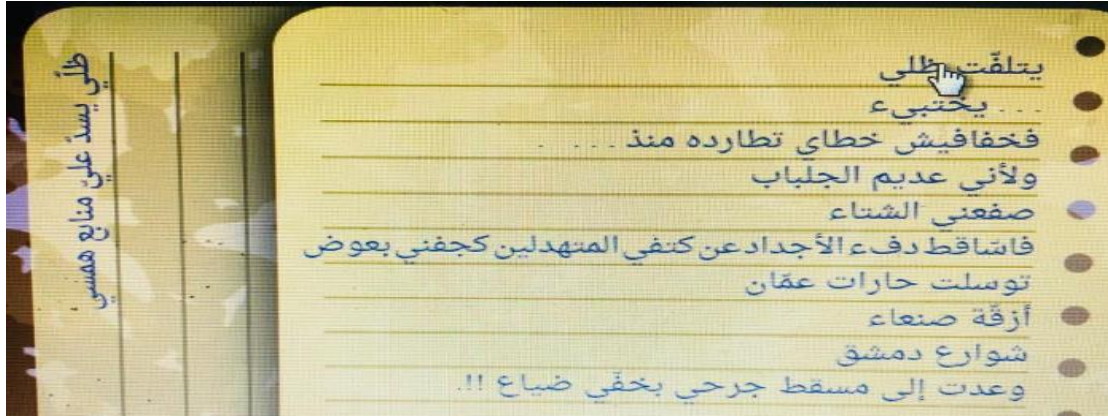 يتلفّت ظلي
. . . يختبيء
فخفافيش خطاي تطارده منذ . . . .
ولأني عديم الجلباب
صفعني الشتاء
فاسّاقط دفء الأجداد عن كتفي المتهدلين كجفني بعوض
توسلت حارات عمّان
أزقّة صنعاء
شوارع دمشق
وعدت إلى مسقط جرحي بخفّي ضياع !!.
ظلّي يسدّ عليّ منابع همسي